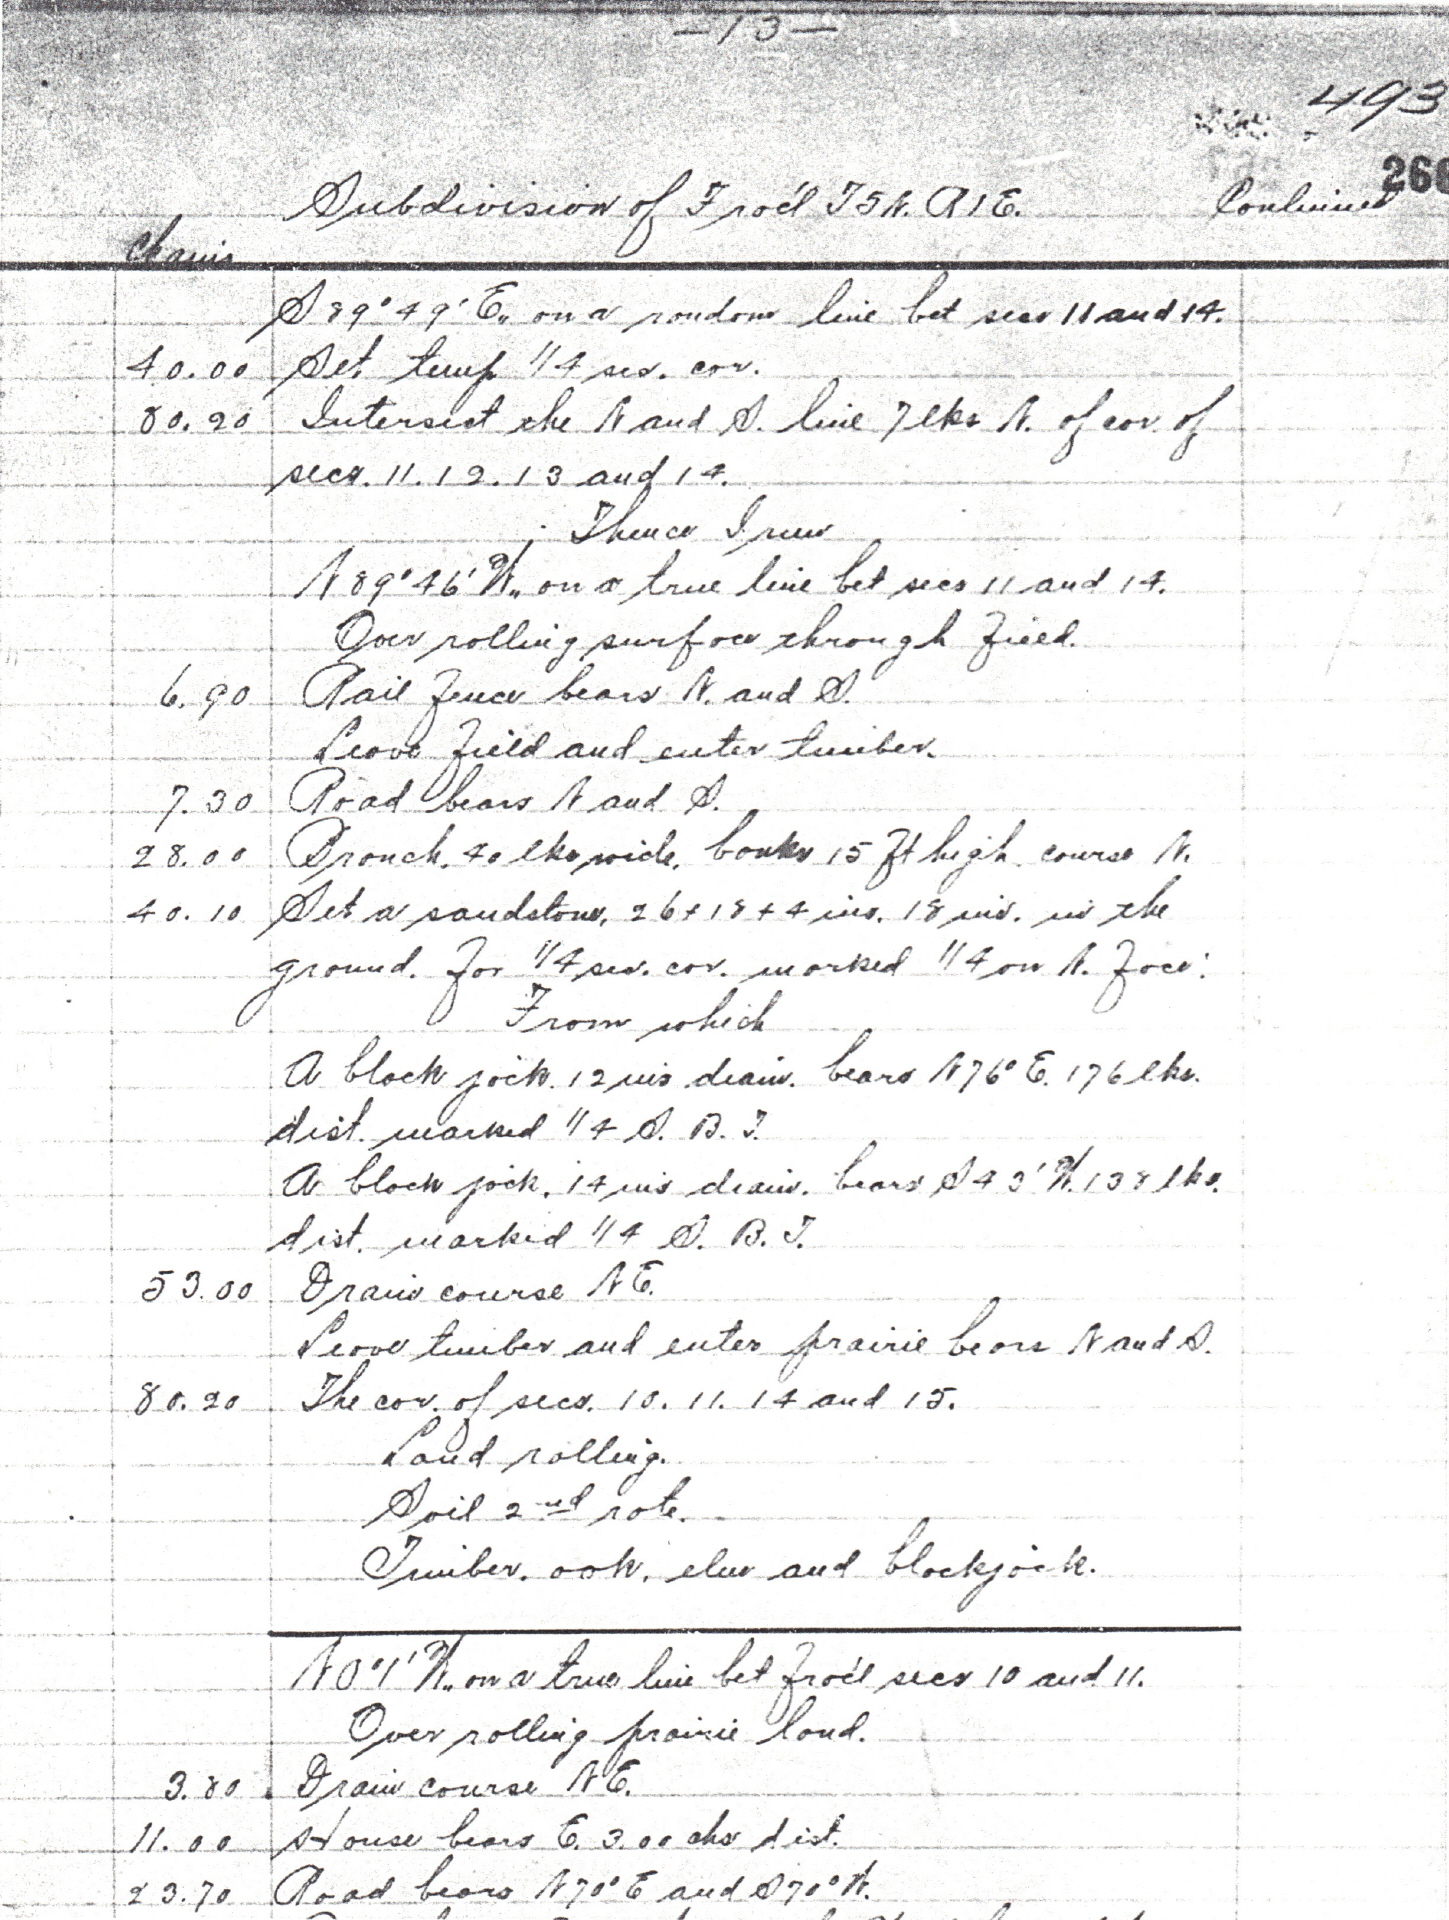 —13—
493
266
Subdivision of Frac'l T5N. R1E. Continued
Chains
S 89° 49' E., on a random line bet secs 11 and 14.
40.00 Set temp 1/4 sec. cor.
80.20 Intersect the N and S. line 7 lks N. of cor. of
secs. 11. 12. 13 and 14.
Thence I run
N 89° 46' W., on a true line bet secs 11 and 14.
Over rolling surface through field.
6.90 Rail fence bears N. and S.
Leave field and enter timber.
7.30 Road bears N and S.
28.00 Branch. 40 lks wide. banks 15 ft high. course N.
40.10 Set a sandstone, 26+18+4 ins. 18 ins. in the
ground. for 1/4 sec. cor. marked 1/4 on N. face:
From which
A black jack. 12 ins diam. bears N76° E. 176 lks.
dist. marked 1/4 S. B. T.
A black jack. 14 ins diam. bears S43' W. 138 lks.
dist. marked 1/4 S. B. T.
53.00 Drain course NE.
Leave timber and enter prairie bears N and S.
80.20 The cor. of secs. 10. 11. 14 and 15.
Land rolling.
Soil 2nd rate.
Timber. oak. elm and blackjack.
N0°1' W., on a true line bet frac'l secs 10 and 11.
Over rolling prairie land.
3.80 Drain course NE.
11.00 House bears E. 3.00 chs dist.
23.70 Road bears N70°E and S70°W.